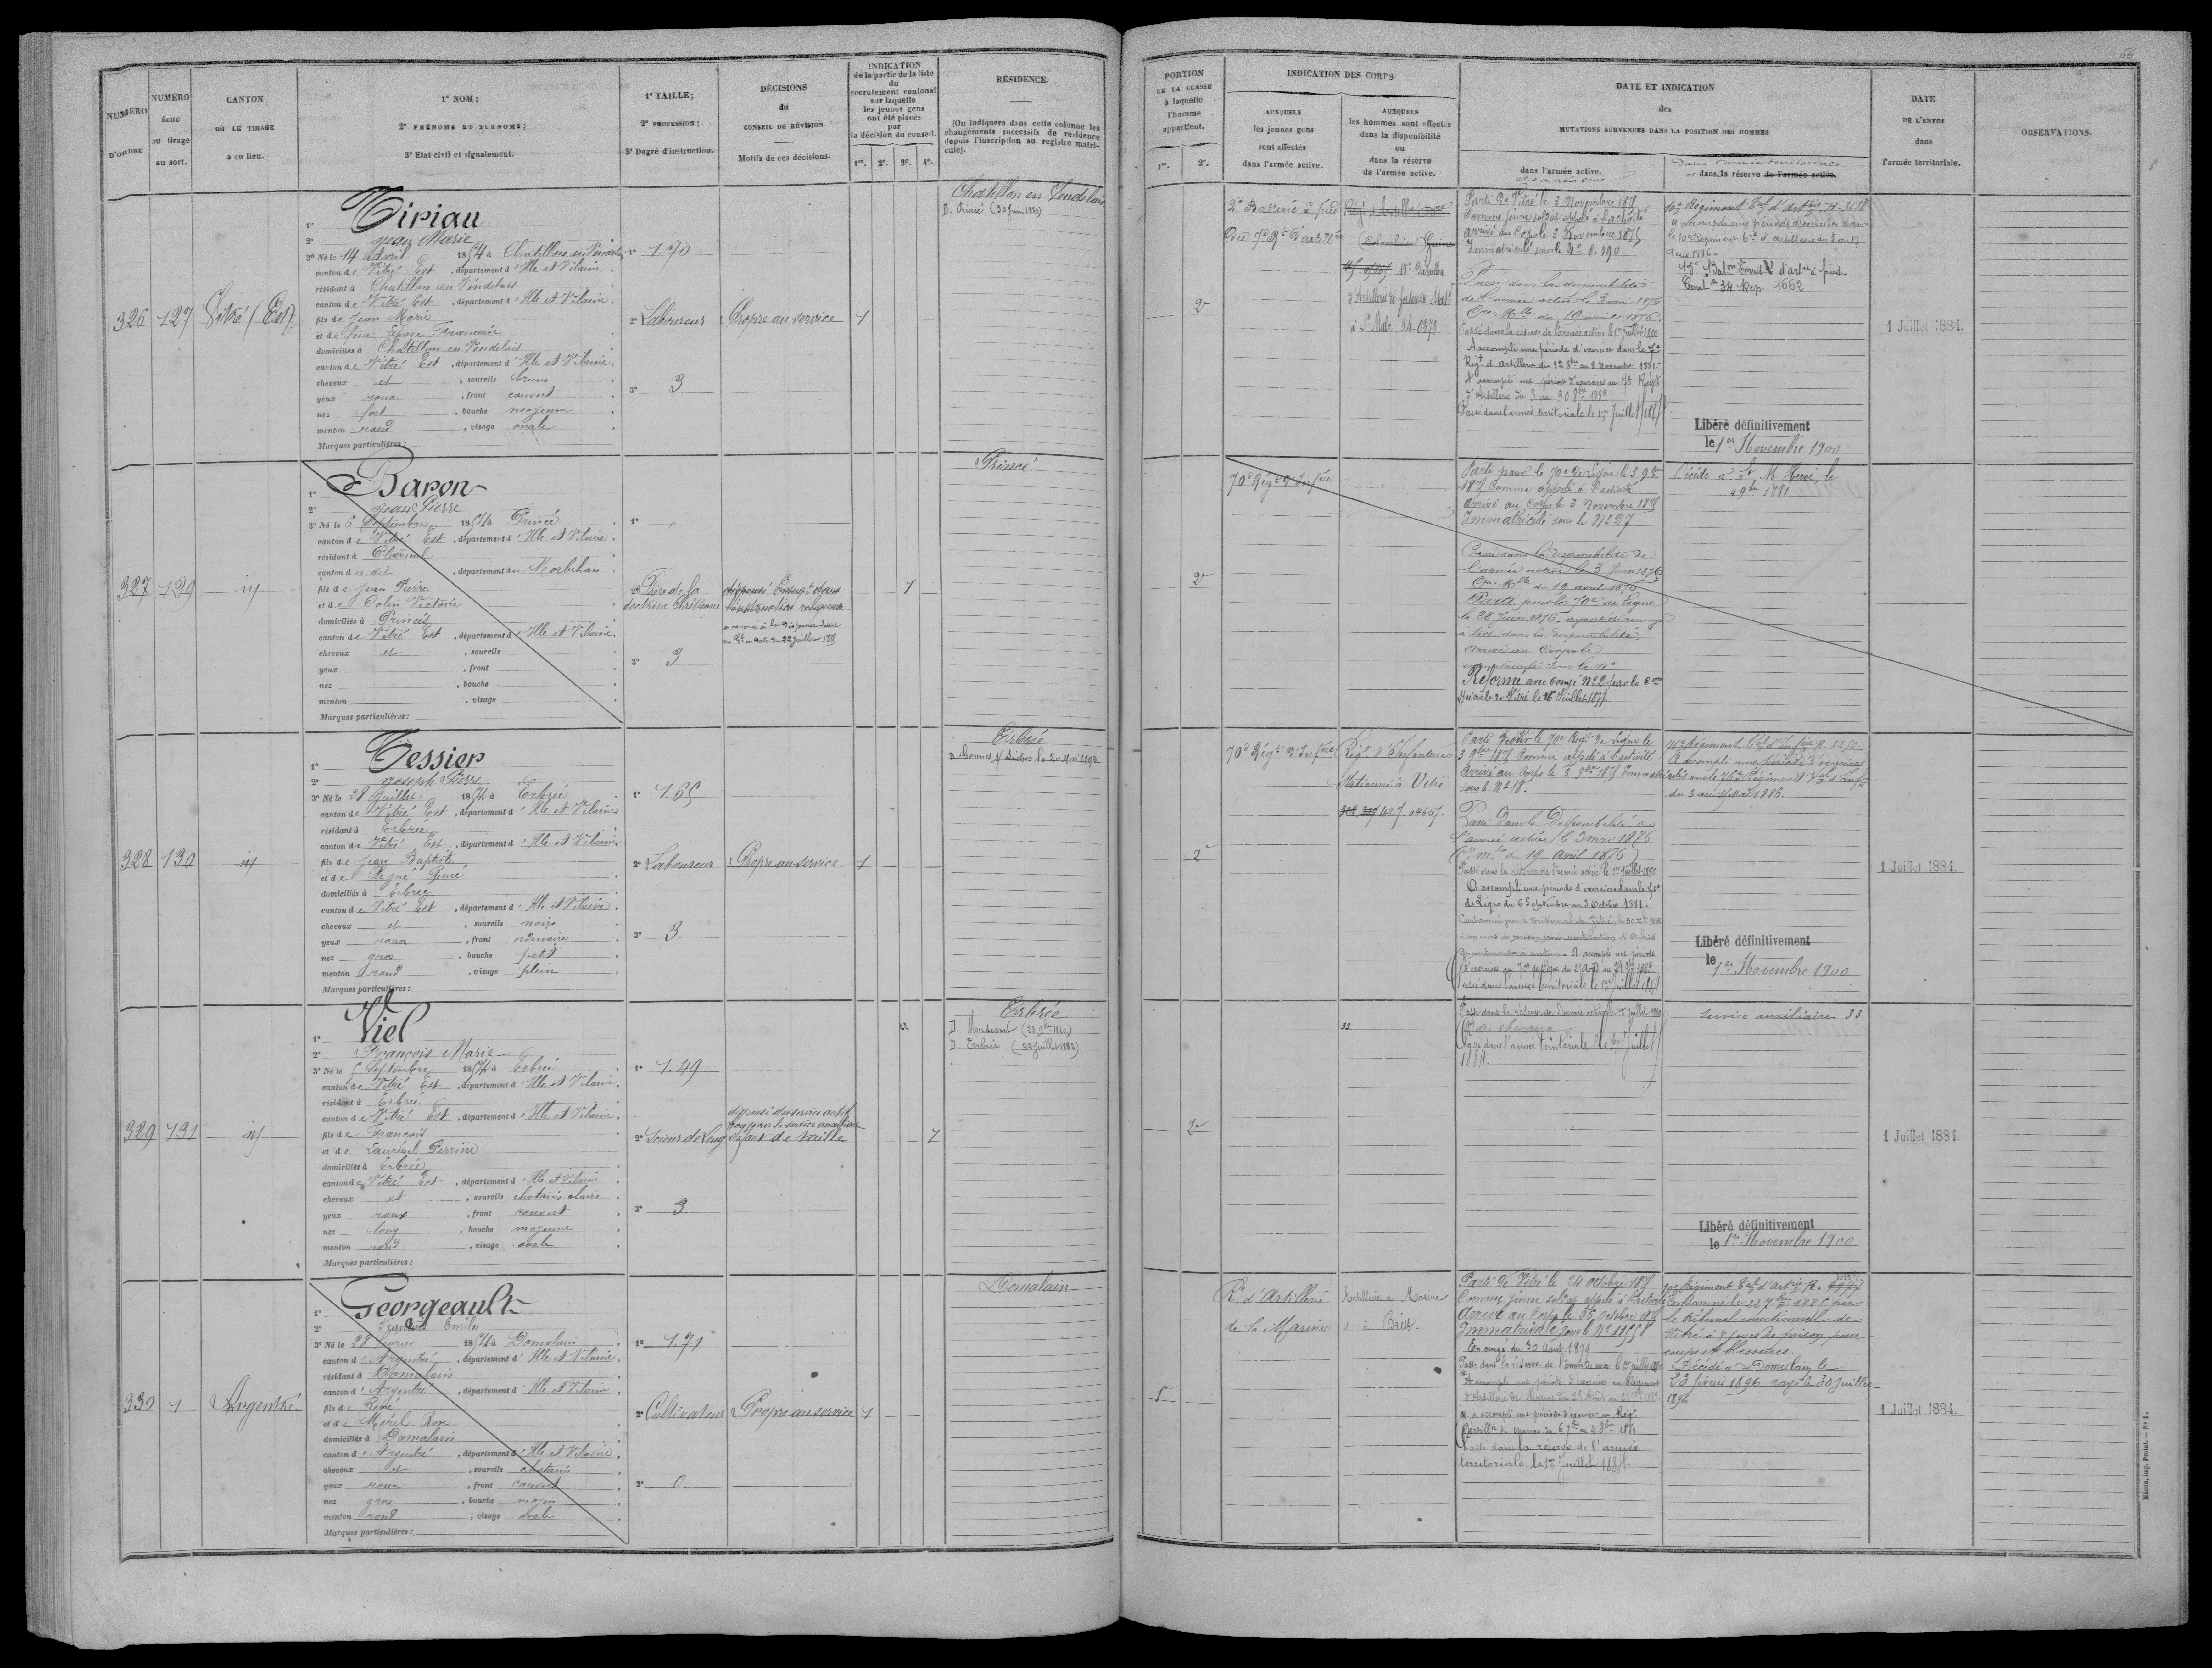 66
NUMÉRO D'ORDRE
NUMÉRO ÉCHU au tirage au sort.
CANTON OÙ LE TIRAGE a eu lieu.
1° NOM;
2° PRÉNOMS ET SURNOMS;
3° Etat civil et signalement.
1° TAILLE;
2° PROFESSION;
3° Degré d'instruction.
DÉCISIONS du CONSEIL DE RÉVISION
Motifs de ces décisions.
INDICATION
de la partie de la liste
du
recrutement cantonal
sur laquelle
les jeunes gens
ont été placés
par
la décision du conseil.
1re. 2e. 3e. 4e.
RÉSIDENCE.
(On indiquera dans cette colonne les
changements successifs de résidence
depuis l'inscription au registre matri-
cule).
PORTION
DE LA CLASSE
à laquelle
l'homme
appartient.
1re. 2e.
INDICATION DES CORPS
AUXQUELS
les jeunes gens
sont affectés
dans l'armée active.
AUXQUELS
les hommes sont affectés
dans la disponibilité
ou
dans la réserve
de l'armée active.
DATE ET INDICATION
des
MUTATIONS SURVENUES DANS LA POSITION DES HOMMES
dans l'armée active.
et sa réserve
dans l'armée territoriale
et dans la réserve de l'armée active.
DATE
DE L'ENVOI
dans
l'armée territoriale.
OBSERVATIONS.
326 127 Vitré (Est)
1° Tiriau
2° Jean Marie
3° Né le 14 Avril 1854 à Chatillon en Vendelais
canton de Vitré Est, département d'Ille et Vilaine.
résidant à Chatillon en Vendelais
canton de Vitré Est, département d'Ille et Vilaine.
fils de Jean Marie
et de feue Françoise
domiciliés à Chatillon en Vendelais
canton de Vitré Est, département d'Ille et Vilaine.
cheveux et, sourcils bruns
yeux roux, front couvert
nez fort, bouche moyenne
menton rond, visage ovale
Marques particulières:
1° 1.70
2° Laboureur
3° 3
Propre au service
1
Chatillon en Vendelais
D. Princé (30 Juin 1880)
2e
2e Batterie à pied
du 7e Rt d'artillie
15e Bataillon
d'Artillerie de forteresse
à St Malo 34.0373
Parti de Vitré le 3 Novembre 1875
Comme jeune soldat appelé à l'activité
arrivé au Corps le 3 Novembre 1875
Immatriculé sous le No 2.190
Passé dans la disponibilité
de l'armée active le 3 mai 1876
Cre Mlle du 19 avril 1876.
Passé dans la réserve de l'armée active le 1er Juillet 1880
A accompli une période d'exercices dans le 7e
Régt d'artillerie du 12 8bre au 8 Novembre 1881.
A accompli une période d'exercices au 7e Régt
d'Artillerie du 3 au 30 8bre 1883
Passé dans l'armée territoriale le 1er Juillet 1884
10e Régiment Tal d'artie R. 3658
a accompli une période d'exercices dans
le 10e Régiment tal d'artillerie du 5 au 17
Avril 1886
Baton Territ d'artie à pied
Cont 34 Rep. 1662
Libéré définitivement
le 1er Novembre 1900
1 Juillet 1884.
327 129 id
1° Baron
2° Jean Pierre
3° Né le 6 Septembre 1854 à Princé
canton de Vitré Est, département d'Ille et Vilaine.
résidant à Ploërmel
canton du dit, département du Morbihan
fils de Jean Pierre
et de Colin Victoire
domiciliés à Princé
canton de Vitré Est, département d'Ille et Vilaine.
cheveux et, sourcils
yeux, front
nez, bouche
menton, visage
Marques particulières:
2° Frère de la
doctrine Chrétienne
3° 3
1
Princé
2e
70e Régt d'Infrie
Parti pour le 70e de Ligne le 3 9bre
1875 Comme appelé à l'activité
Arrivé au Corps le 3 Novembre 1875
Immatriculé sous le No 27
Passé dans la disponibilité de
l'armée active le 3 Juin 1876
Cre Mlle du 19 avril 1876
Parti pour le 70e de Ligne
le 28 Juin 1876, ayant été renvoyé
à tort dans la disponibilité,
Arrivé au Corps le
immatriculé sous le No
Réformé avec Congé No 2 par la Con
Spéciale de Vitré le 16 Juillet 1877
Décédé à St M Hervé, le
9bre 1881
328 130 id
1° Tessier
2° Joseph Pierre
3° Né le 28 Juillet 1854 à Erbrée
canton de Vitré Est, département d'Ille et Vilaine
résidant à Erbrée
canton de Vitré Est, département d'Ille et Vilaine
fils de Jean Baptiste
et de Legué Renée
domiciliés à Erbrée
canton de Vitré Est, département d'Ille et Vilaine.
cheveux et, sourcils noirs
yeux roux, front ordinaire
nez gros, bouche petite
menton rond, visage plein
Marques particulières:
1° 1.65
2° Laboureur
3° 3
Propre au service
1
Erbrée
2e
70e Régt d'Infrie
Régt d'Infanterie
Stationné à Vitré
Parti pour le 70e Regt de Ligne le
3 9bre 1875 Comme appelé à l'activité
Arrivé au Corps le 3 9bre 1875 Immatriculé
sous le No 18.
Passé dans la Disponibilité de
l'armée active le 3 mai 1876
(Cre mlle du 19 Avril 1876)
Passé dans la réserve de l'armée active le 1er Juillet 1880
A accompli une période d'exercices dans le 70e
de Ligne du 6 Septembre au 3 Octobre 1881.
Passé dans l'armée territoriale le 1er Juillet 1884
76e Régiment Tal d'Infrie R. 2250
A accompli une période d'exercices
dans le 76e Régiment Tal d'Infie
du 3 au 15 Mai 1886.
Libéré définitivement
le 1er Novembre 1900
1 Juillet 1884.
329 131 id
1° Viel
2° François Marie
3° Né le 5 Septembre 1854 à Erbrée
canton de Vitré Est, département d'Ille et Vilaine.
résidant à Erbrée
canton de Vitré Est, département d'Ille et Vilaine.
fils de François
et de Perrine
domiciliés à Erbrée
canton de Vitré Est, département d'Ille et Vilaine
cheveux et, sourcils chatains clairs
yeux roux, front couvert
nez long, bouche moyenne
menton rond, visage ovale
Marques particulières:
1° 1.49
2° Scieur de Long
3° 3.
dispensé du service actif
bon pour le service auxiliaire
défaut de taille
1
Erbrée
D. Mondevert (28 9bre 1880.)
D. Erbrée (22 Juillet 1882)
2e
33
Passé dans la réserve de l'armée active le 1er Juillet 1880
Passé dans l'armée territoriale le 1er Juillet
1884.
Service auxiliaire 33
Libéré définitivement
le 1er Novembre 1900
1 Juillet 1884.
330 1 Argentré
1° Georgeault
2° François Emile
3° Né le 28 février 1854 à Domalain
canton d'Argentré, département d'Ille et Vilaine.
résidant à Domalain
canton d'Argentré, département d'Ille et Vilaine
fils de René
et de Morel Rose
domiciliés à Domalain
canton d'Argentré, département d'Ille et Vilaine.
cheveux et, sourcils chatains
yeux roux, front couvert
nez gros, bouche moyen
menton rond, visage ovale
Marques particulières:
1° 1.71
2° Cultivateur
3° 0.
Propre au service
1
Domalain
1
Rt d'Artillerie
de la Marine
Artillerie de Marine
à Brest.
Parti de Vitré le 24 octobre 1875
Comme jeune soldat appelé à l'activité
Arrivé au Corps le 26 octobre 1875
Immatriculé sous le No
En congé du 30 Août 1879
A accompli une période d'exercices au Régiment
a accompli une période d'exercices au Régt
d'artillie de marine du 6 7bre au 4 8bre 1884.
Passé dans la réserve de l'armée
territoriale le 1er Juillet 1884.
10e Régiment Tal d'Artrie R.
Condamné le 22 7bre 1885 par
le tribunal correctionnel de
Vitré à 8 jours de prison pour
coups et blessures
Décédé à Domalain le
23 février 1896 rayé le 30 Juillet
1896
1 Juillet 1884.